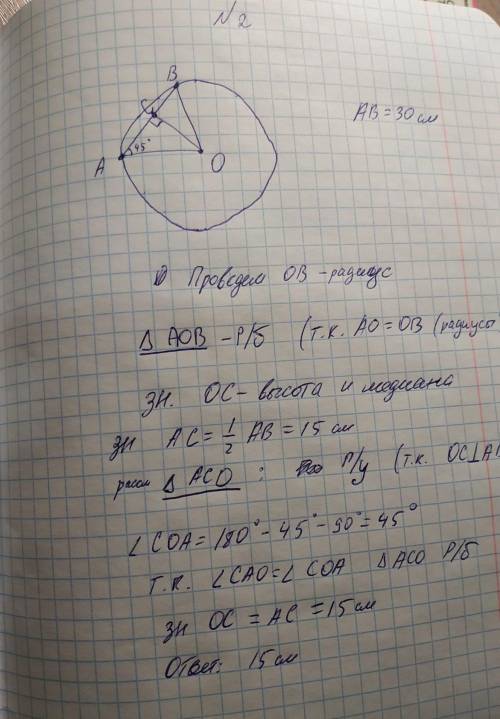 N 2
B
C
A
45°
O
AB = 30 см
Проведем OB - радиус
Δ AOB - Р/б (т.к. AO = OB (радиусы
зн. OC - высота и медиана
зн AC = 1/2 AB = 15 см
рассм Δ ACO : Р/у (т.к. OC⊥A
∠COA = 180° - 45° - 90° = 45°
т.к. ∠CAO = ∠COA Δ ACO Р/б
зн OC = AC = 15 см
Ответ: 15 см